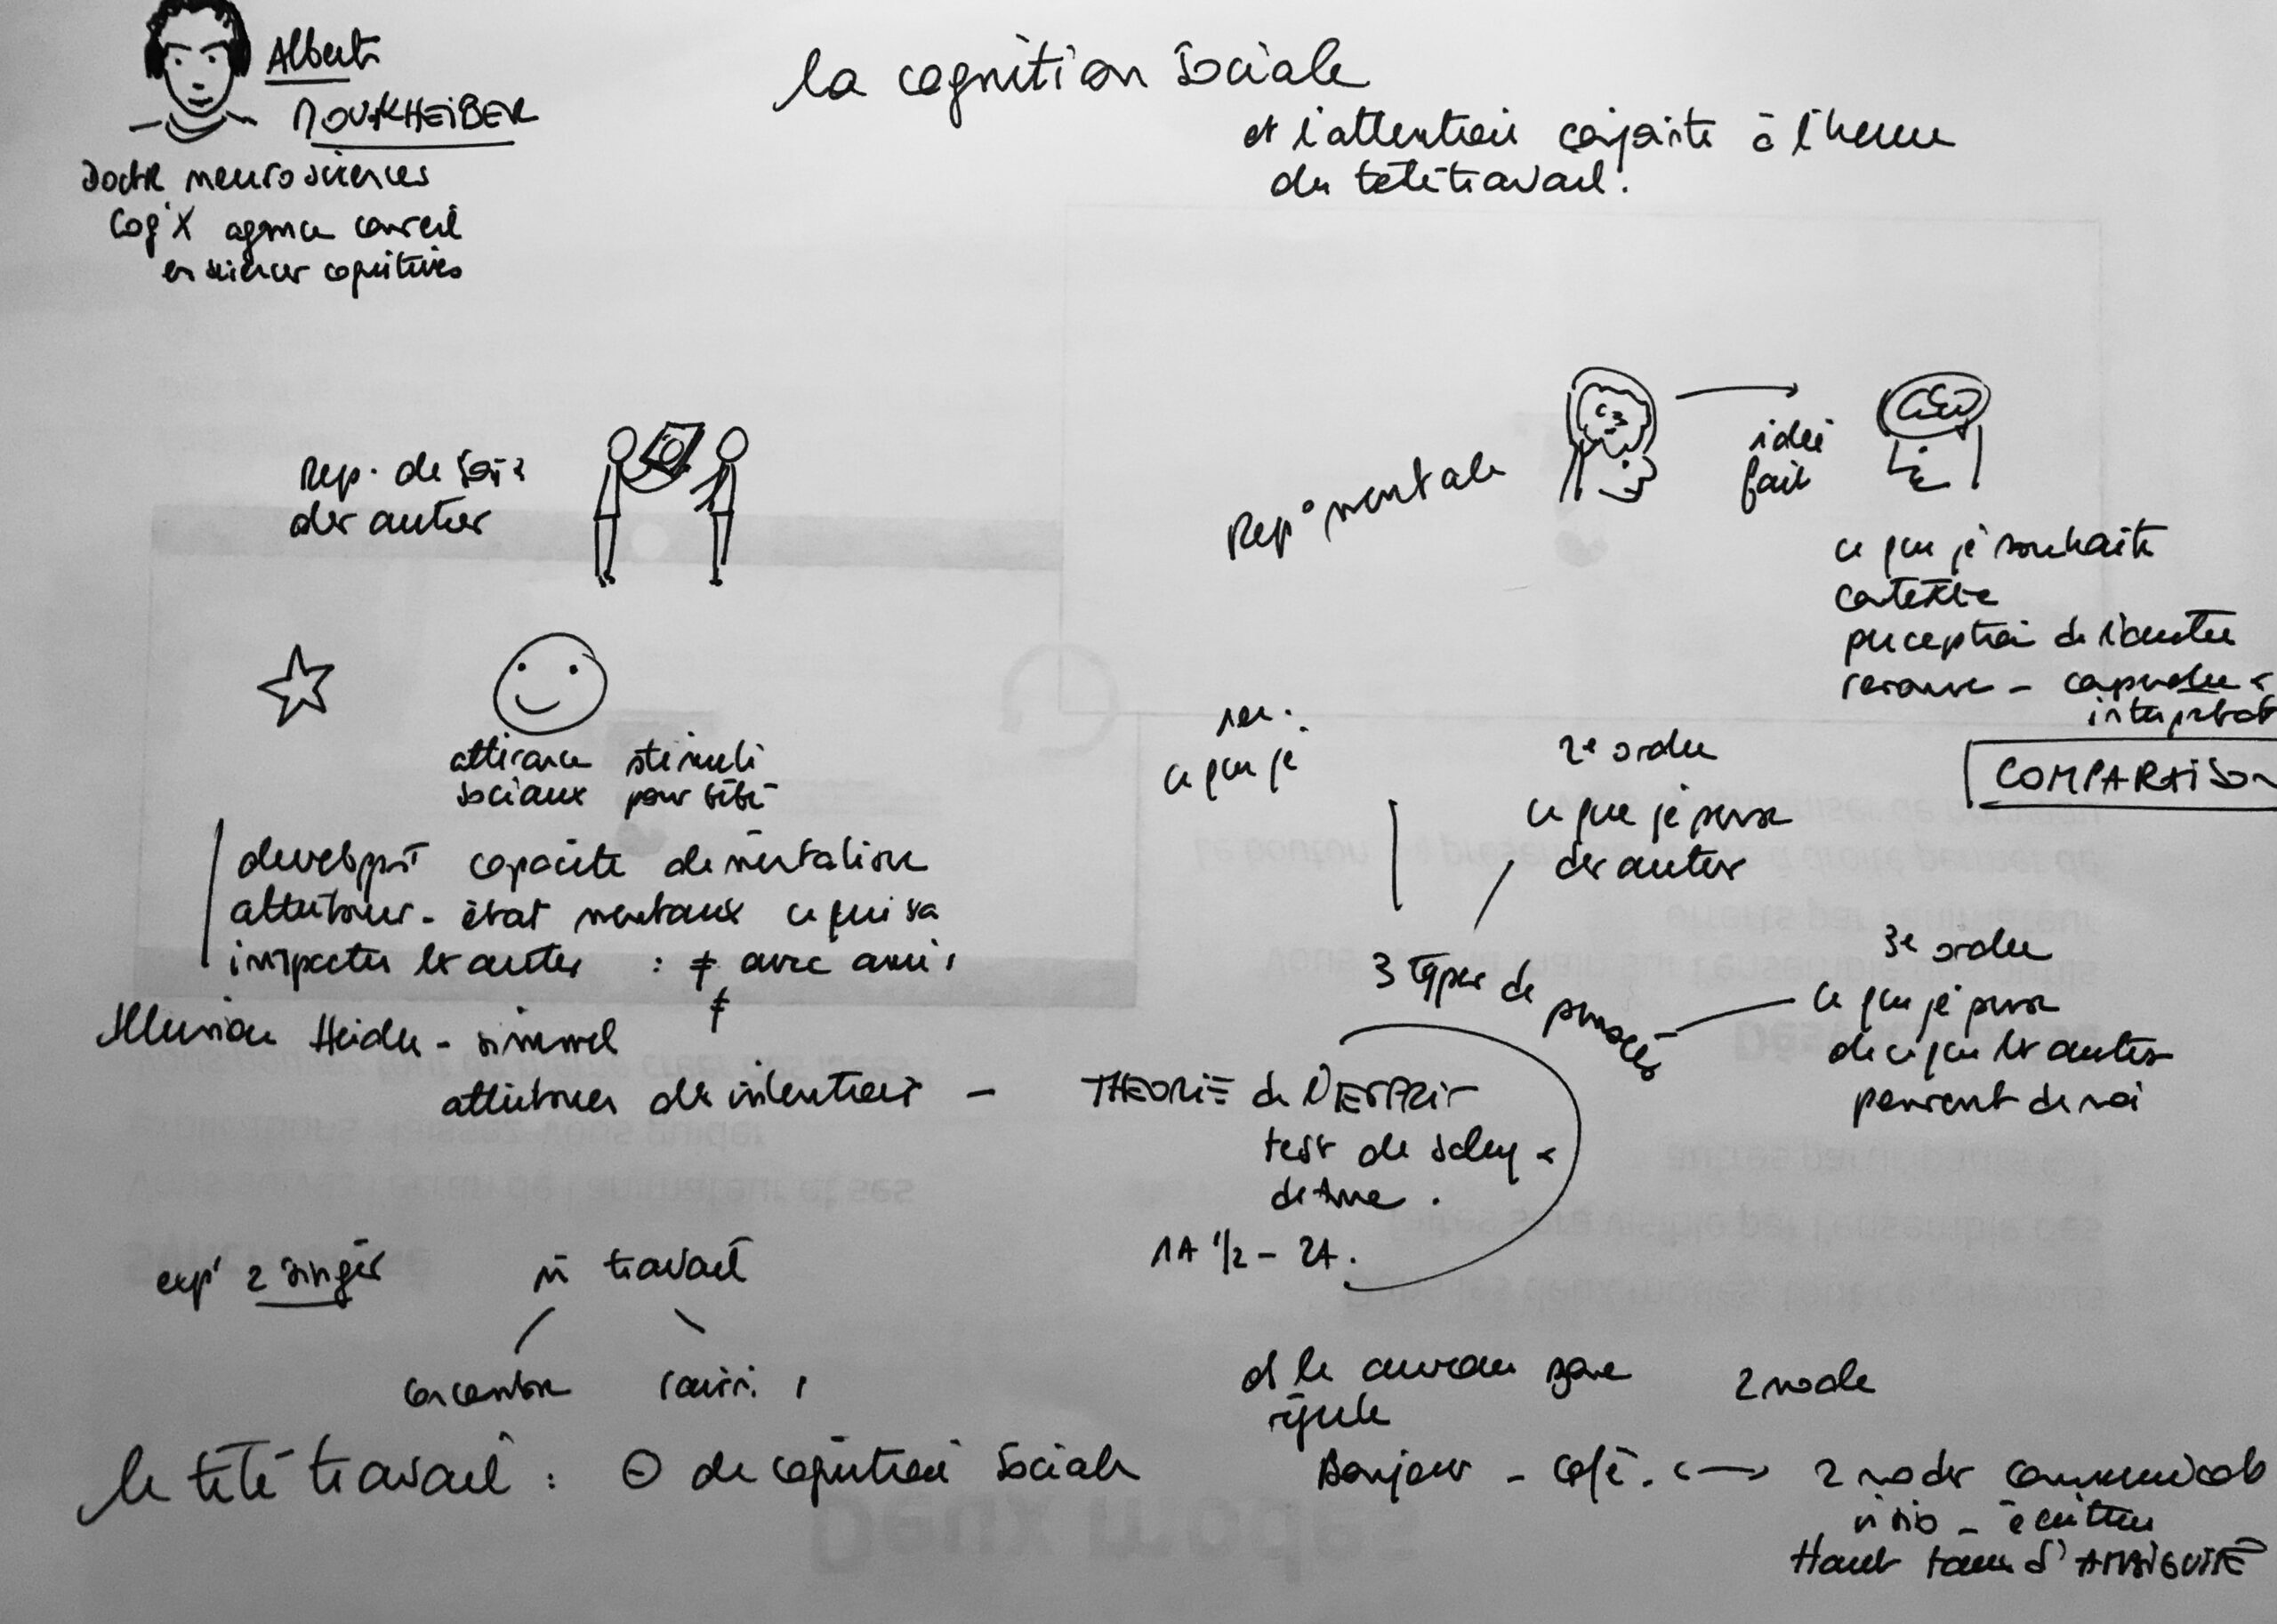 Albert
MOUKHEIBER
Doctr neurosciences
Cog'X agence conseil
en sciences cognitives
la cognition Sociale
et l'attention conjointe à l'heure
du télétravail.
Rep. de soi &
des autres
Rep° mentale
idée
fait
ce que je souhaite
contexte
perception de l'autre
COMPARAISON
attirance stimuli
sociaux pour bébé
developpt capacité de mentaliser
attribuer - état mentaux ce qui va
impacter les autres : ≠ avec amis
≠
Illusion Heider - simmel
attribuer des intentions -
ce que je
2e ordre
ce que je pense
des autres
3 types de pensées
3e ordre
ce que je pense
de ce que les autres
pensent de moi
THEORIE de l'ESPRIT
test de Sally &
de Anne.
1A 1/2 - 2A.
exp' 2 singes
travail
le télétravail : ⊖ de cognition Sociale
ds le cerveau zone
2 mode
Bonjour - café. <-> 2 modes
visio - écriture
Haut taux d'AMBIGUITÉ